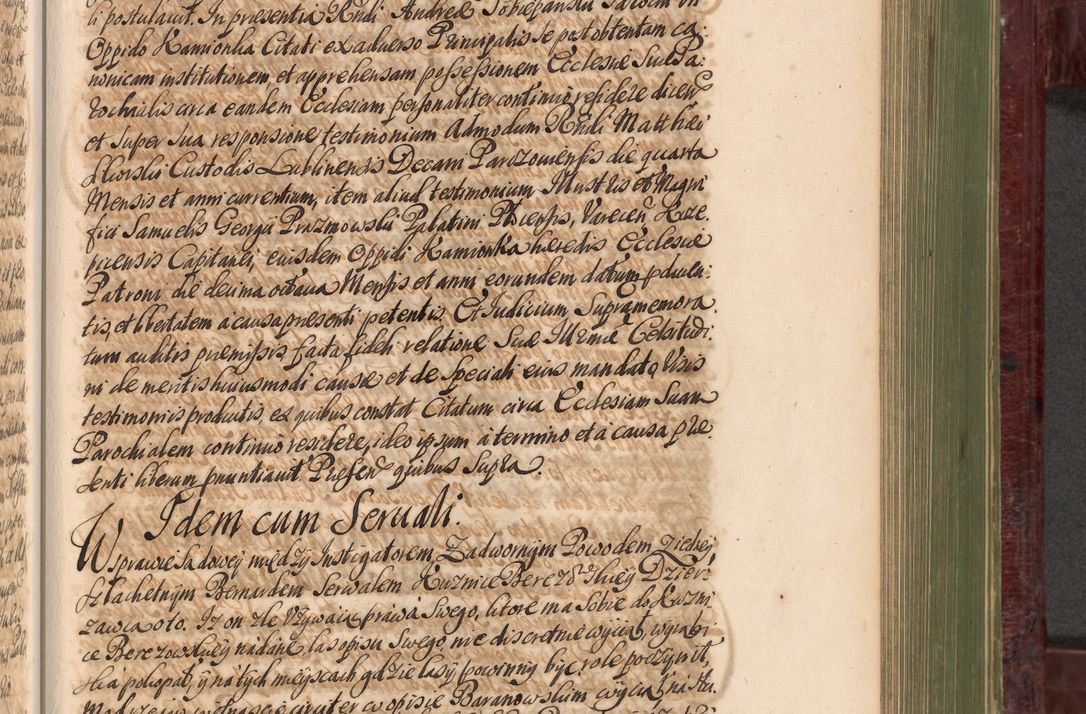 li postulavit. In presentia Rndi Andreæ
Oppido Kamionka Citati ex adverso Principalis se post obtentam ca:
nonicam institutionem et apprehensam possessionem Ecclesiæ Suæ Pa:
rochialis circa eandem Ecclesiam personaliter continuo residere dicen
et super sua responsione testimonium Admodum Rndi Matthæi
Custodis Lublinensis Decani Parczoviensis die quarta
Mensis et anni currentium, item aliud testimonium Illustris et Magni
fici Samuelis Georgii Prazmowski Palatini Plocensis, Varecen
Capitanei, eiusdem Oppidi Kamionka hæredis Ecclesiæ
Patroni die decima octava Mensis et anni eorundem datum producen:
tis, et libertatem a causa presenti petentis Et Iudicium Supramemora:
tum auditis præmissis facta fideli relatione Suæ Illmæ Celsitudi:
ni de meritis huiusmodi causæ et de speciali eius mandato, Visis
testimoniis productis, ex quibus constat Citatum circa Ecclesiam suam
Parochialem continuo residere, ideo ipsum a termino et a causa præ:
senti liberum pnuntiavit. Presen quibus Supra.
Idem cum Servali.
W sprawie Sądowey między Instigatorem Zadwornym Powodem z iedney,
Szlachetnym Bernardem Serwalem Kuznice Berezowskiey Dzier:
zawca o to. Iz on zle Vzywaiąc prawa Swego, ktore ma Sobie do Kuzni
ce Berezowskiey nadane, las opisu Swego, nie discretnie wyciął, wyrabi
ska pokopał, y na tych mieyscach gdzie lasy powinny byc, role poczynił,
circiter w opisie Baranowskim wyciął,